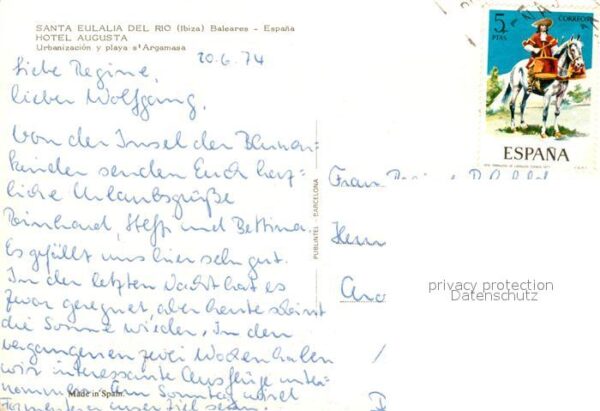 SANTA EULALIA DEL RIO (Ibiza) Baleares - España
HOTEL AUGUSTA
Urbanización y playa s'Argamasa
20.6.74
Liebe Regine,
lieber Wolfgang,
Von der Insel der Blumen-
kinder senden Euch herz-
liche Urlaubsgrüße
Reinhard, Steff und Bettina.
Es gefällt uns hier sehr gut.
In der letzten Nacht hat es
zwar geregnet, aber heute scheint
die Sonne wieder. In den
vergangenen zwei Wochen haben
wir interessante Ausflüge unter-
nommen. Am Sonntag wird
Formentera unser Ziel sein.
Made in Spain
PUBLINTEL - BARCELONA
5
PTAS
CORREOS
ESPAÑA
Frau
Herrn
privacy protection
Datenschutz